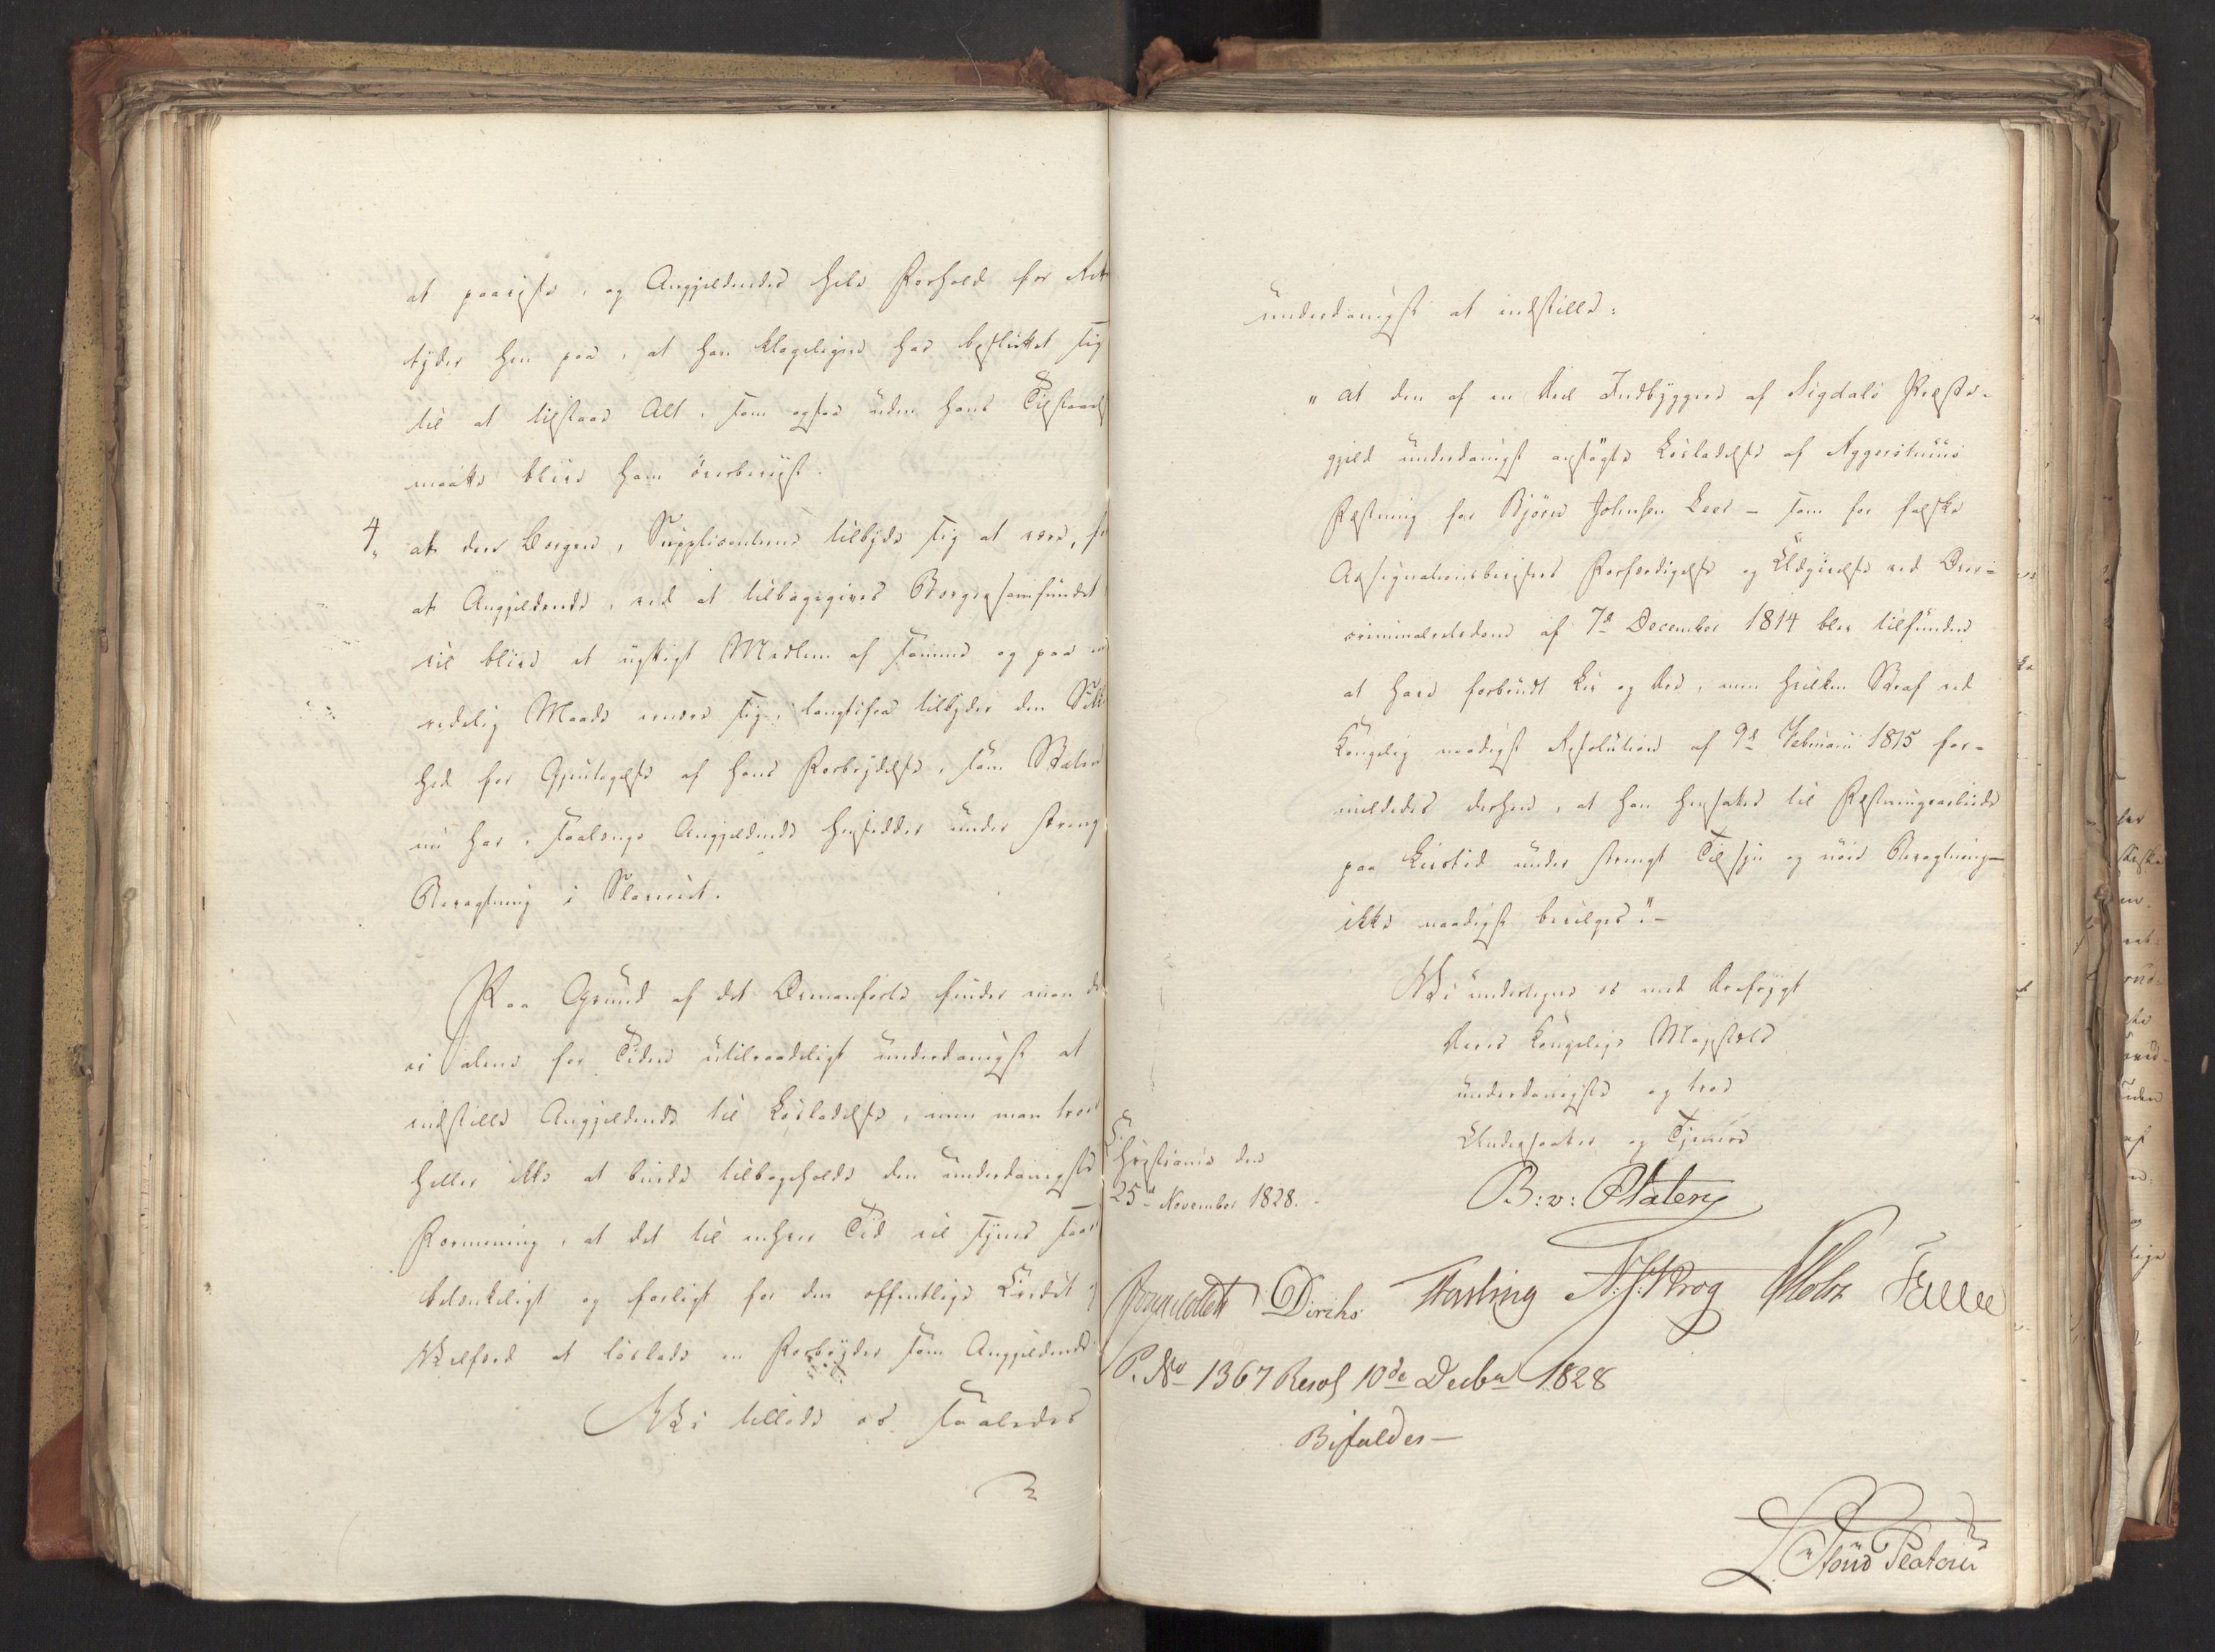 at paavise, og Angjældendes hele Forhold for Ret
tyder hen paa, at han klogeligen har besluttet sig
til at tilstaae Alt, som ogsaa uden hans Tilstaaelse
maatte blive ham overbeviist.
4, at den Borgen, Supplicanterne tilbyde sig at være, for
at Angjældende, ved at tilbagegives Borgersamfundet
vil blive et nyttigt Medlem af samme og paa en
redelig Maade ernære sig, langtfra tilbyder den Sikker-
hed for Gjentagelse af hans Forbrydelse, som Staten
nu har, saalænge Angjældende hensidder under streng
Bevogtning i Slaveriet.
Paa Grund af det Ovenanførte finder man det
vi alene for Tiden utilraadeligt underdanigst at
indstille Angjældende til Løsladelse, men man troer
heller ikke at burde tilbageholde den underdanigste
Formening, at det til enhver Tid vil synes saare
betænkeligt og farligt for den offentlige Credit og
Velfærd at løslade en Forbryder som Angjældende.
Vi tillade os saaledes
underdanigst at indstille:
"at den af en Deel Indbyggere af Sigdals Præste-
gjeld underdanigst ansøgte Løsladelse af Aggershuus
Fæstning for Bjørn Johnsen Lees – som for falske
Assignationsbevisers Forfærdigelse og Udgivelse ved Over-
criminalretsdom af 7de December 1814 blev tilfunden
at have forbrudt Liv og Ære, men hvilken Straf ved
Kongelig naadigst Resolution af 9de Februarii 1815 for-
mildedes derhen, at han hensattes til Fæstningsarbeide
paa Livstid under strengt Tilsyn og nøie Bevogtning –
ikke naadigst bevilges." –
Vi undertegne os med Ærefrygt
Deres Kongelige Majestæts
underdanigste og troe
Undersaatter og Tjenere
Christiania den
25de November 1828.
B: v: Platen
Diriks Fasting N. J. Krog Holst
P. No 1367 Resol 10de Decbr 1828
Bifaldes –
Platou